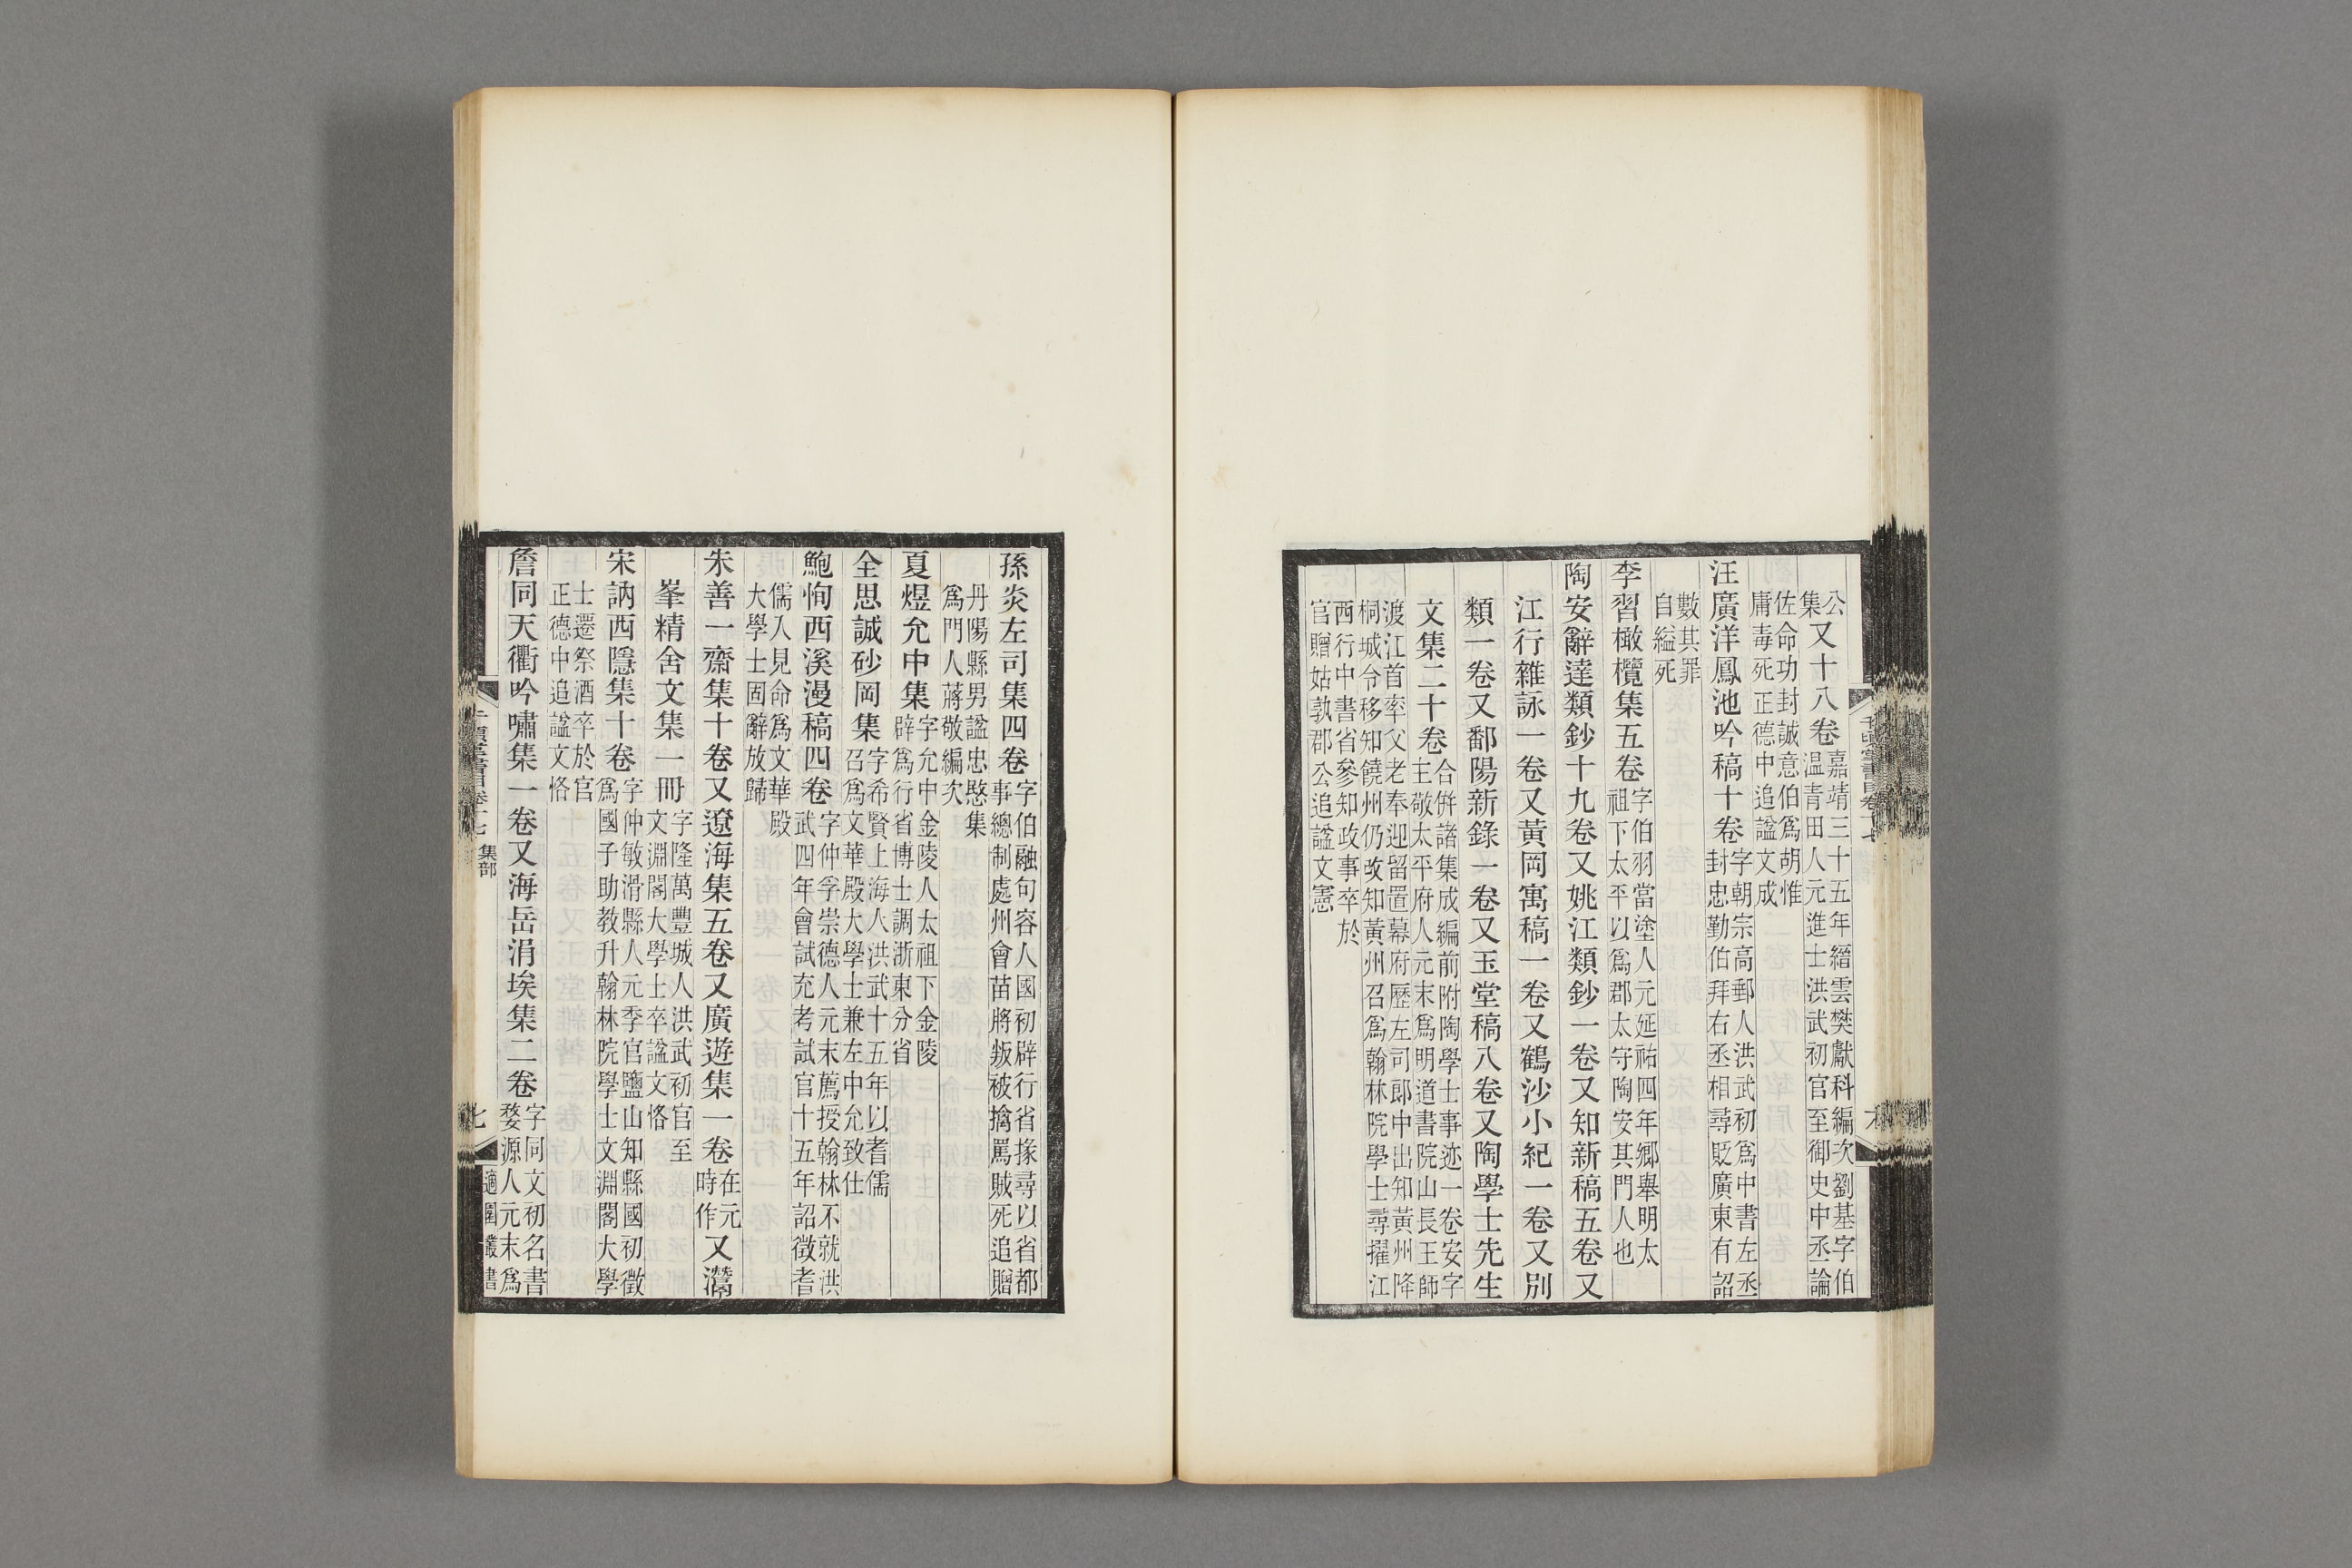 公集又十八卷嘉靖三十五年縉雲樊獻科編次劉基字伯温青田人元進士洪武初官至御史中丞論
佐命功封誠意伯爲胡惟庸毒死正德中追諡文成
汪廣洋鳳池吟稿十卷字朝宗高郵人洪武初爲中書左丞封忠勤伯拜右丞相尋貶廣東有詔
數其罪自縊死
李習橄欖集五卷字伯羽當塗人元延祐四年鄉舉明太祖下太平以爲郡太守陶安其門人也
陶安辭達類鈔十九卷又姚江類鈔一卷又知新稿五卷又
江行雜詠一卷又黃岡寓稿一卷又鶴沙小紀一卷又別
類一卷又鄱陽新錄一卷又玉堂稿八卷又陶學士先生
文集二十卷合併諸集成編前附陶學士事迹一卷安字主敬太平府人元末爲明道書院山長王師
渡江首率父老奉迎留置幕府歷左司郎中出知黃州降桐城令移知饒州仍改知黃州召爲翰林院學士尋擢江
西行中書省參知政事卒於官贈姑孰郡公追諡文憲
千頃堂書目卷十七
六
孫炎左司集四卷字伯融句容人國初辟行省掾尋以省都事總制處州會苗將叛被擒罵賊死追贈
丹陽縣男諡忠愍集爲門人蔣敬編次
夏煜允中集字允中金陵人太祖下金陵辟爲行省博士調浙東分省
全思誠砂岡集字希賢上海人洪武十五年以耆儒召爲文華殿大學士兼左中允致仕
鮑恂西溪漫稿四卷字仲孚崇德人元末薦授翰林不就洪武四年會試充考試官十五年詔徵耆
儒入見命爲文華殿大學士固辭放歸
朱善一齋集十卷又遼海集五卷又廣遊集一卷在元時作又灊
峯精舍文集一冊字隆萬豐城人洪武初官至文淵閣大學士卒諡文恪
宋訥西隱集十卷字仲敏滑縣人元季官鹽山知縣國初徵爲國子助教升翰林院學士文淵閣大學
士遷祭酒卒於官正德中追諡文恪
詹同天衢吟嘯集一卷又海岳涓埃集二卷字同文初名書婺源人元末爲
千頃堂書目卷十七 集部
七
適園叢書